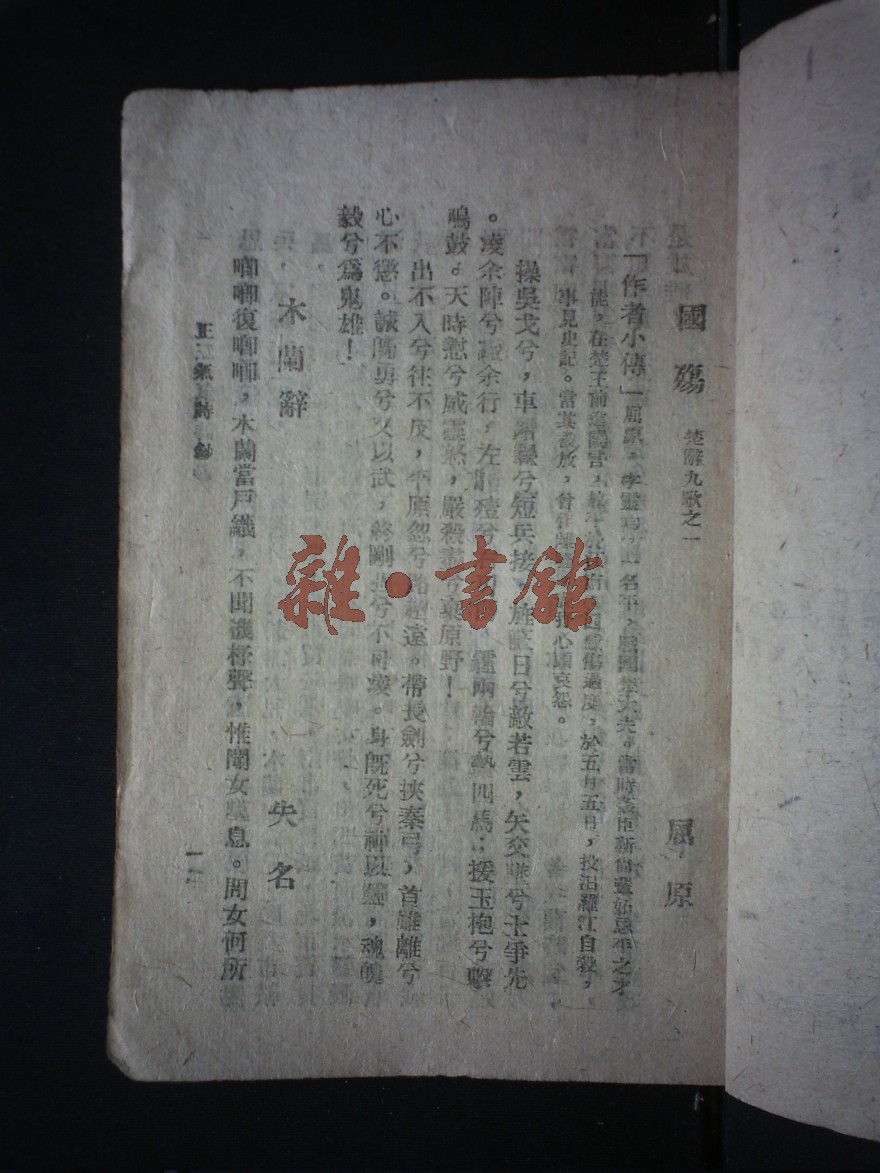 國殤 楚辭九歌之一 屈原
「作者小傳」屈原，字靈均，一名平，戰國楚大夫。當時
能，在楚王前進讒言，感傷過度，於五月五日，投汨羅江自殺，
事見史記。當其被放，曾作心頭哀怨。
操吳戈兮，車錯轂兮短兵接，旌蔽日兮敵若雲，矢交墜兮士爭先
。淩余陣兮躐余行，左驂殪兮霾兩輪兮縶四馬；援玉枹兮擊
鳴鼓。天時懟兮威靈怒，嚴殺盡兮棄原野！
出不入兮往不反，平原忽兮路超遠。帶長劍兮挾秦弓，首雖離兮
心不懲。誠既勇兮又以武，終剛強兮不可淩。身既死兮神以靈，魂魄
毅兮爲鬼雄！
木蘭辭 失名
喞喞復喞喞，木蘭當戶織，不聞機杼聲，惟聞女歎息。問女何所
正氣詩鈔
一
雜·書館